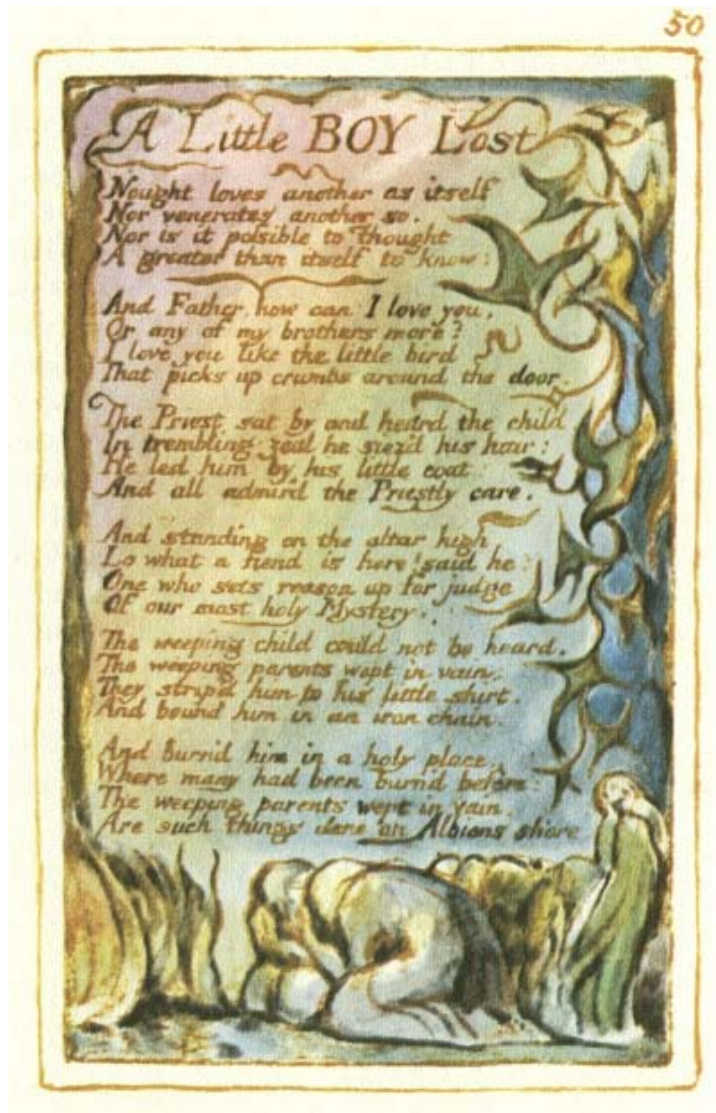 50
A Little BOY Lost
Nought loves another as itself
Nor venerates another so.
Nor is it possible to Thought
A greater than itself to know:
And Father, how can I love you,
Or any of my brothers more?
I love you like the little bird
That picks up crumbs around the door.
The Priest sat by and heard the child
In trembling zeal he siez'd his hair:
He led him by his little coat:
And all admir'd the Priestly care.
And standing on the altar high
Lo what a fiend is here! said he:
One who sets reason up for judge
Of our most holy Mystery.
The weeping child could not be heard.
The weeping parents wept in vain:
They strip'd him to his little shirt.
And bound him in an iron chain.
And burn'd him in a holy place,
Where many had been burn'd before:
The weeping parents wept in vain.
Are such things done on Albions shore